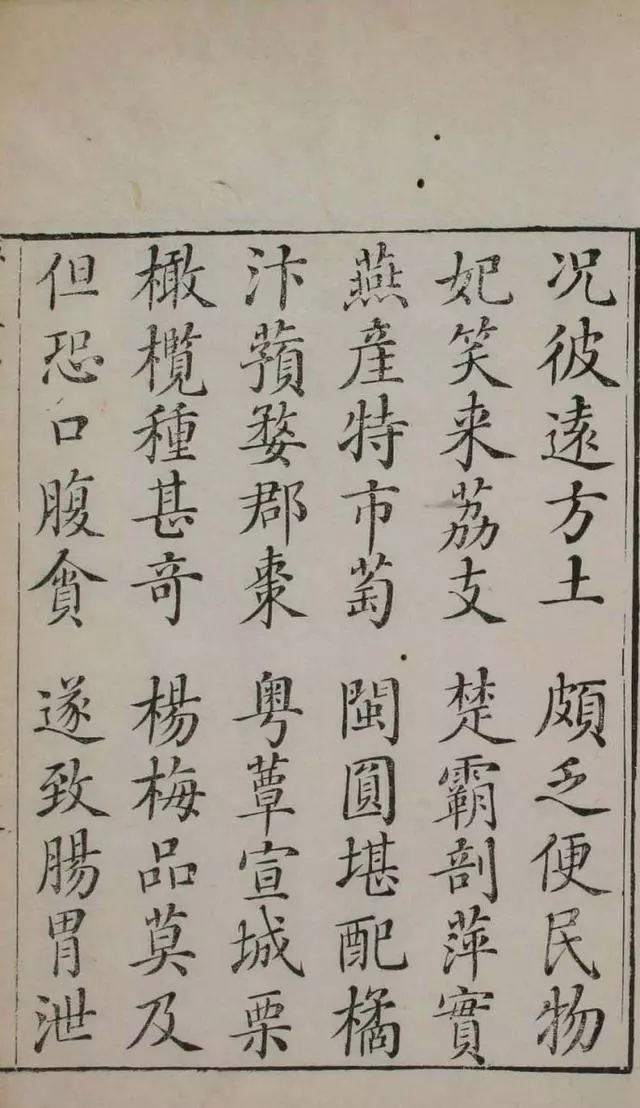 况彼遠方土 頗乏便民物
妃笑来荔支 楚霸剖萍實
燕產特市萄 閩圓堪配橘
汴蘋婺郡棗 粤蕈宣城栗
橄欖種甚奇 楊梅品莫及
但恐口腹貪 遂致腸胃泄